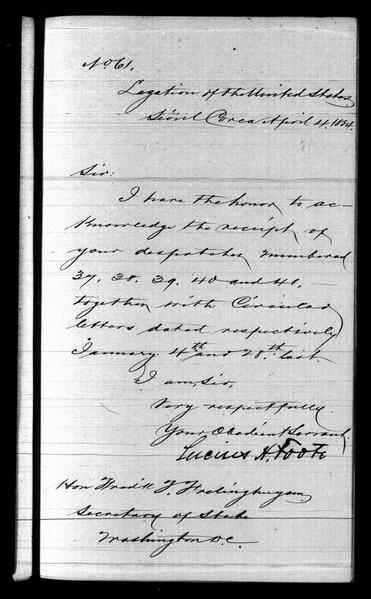 No 61.
Legation of the United States
Seoul Corea April 4. 1884.
Sir:
I have the honor to ac-
knowledge the receipt of
your despatches, numbered
37, 38, 39, 40 and 41,
together with Circular
letters dated respectively
January 4th and 28th last.
I am, Sir,
Very respectfully
Your Obedient Servant,
Lucius H. Foote
Hon Fred'k T. Frelinghuysen,
Secretary of State
Washington D.C.